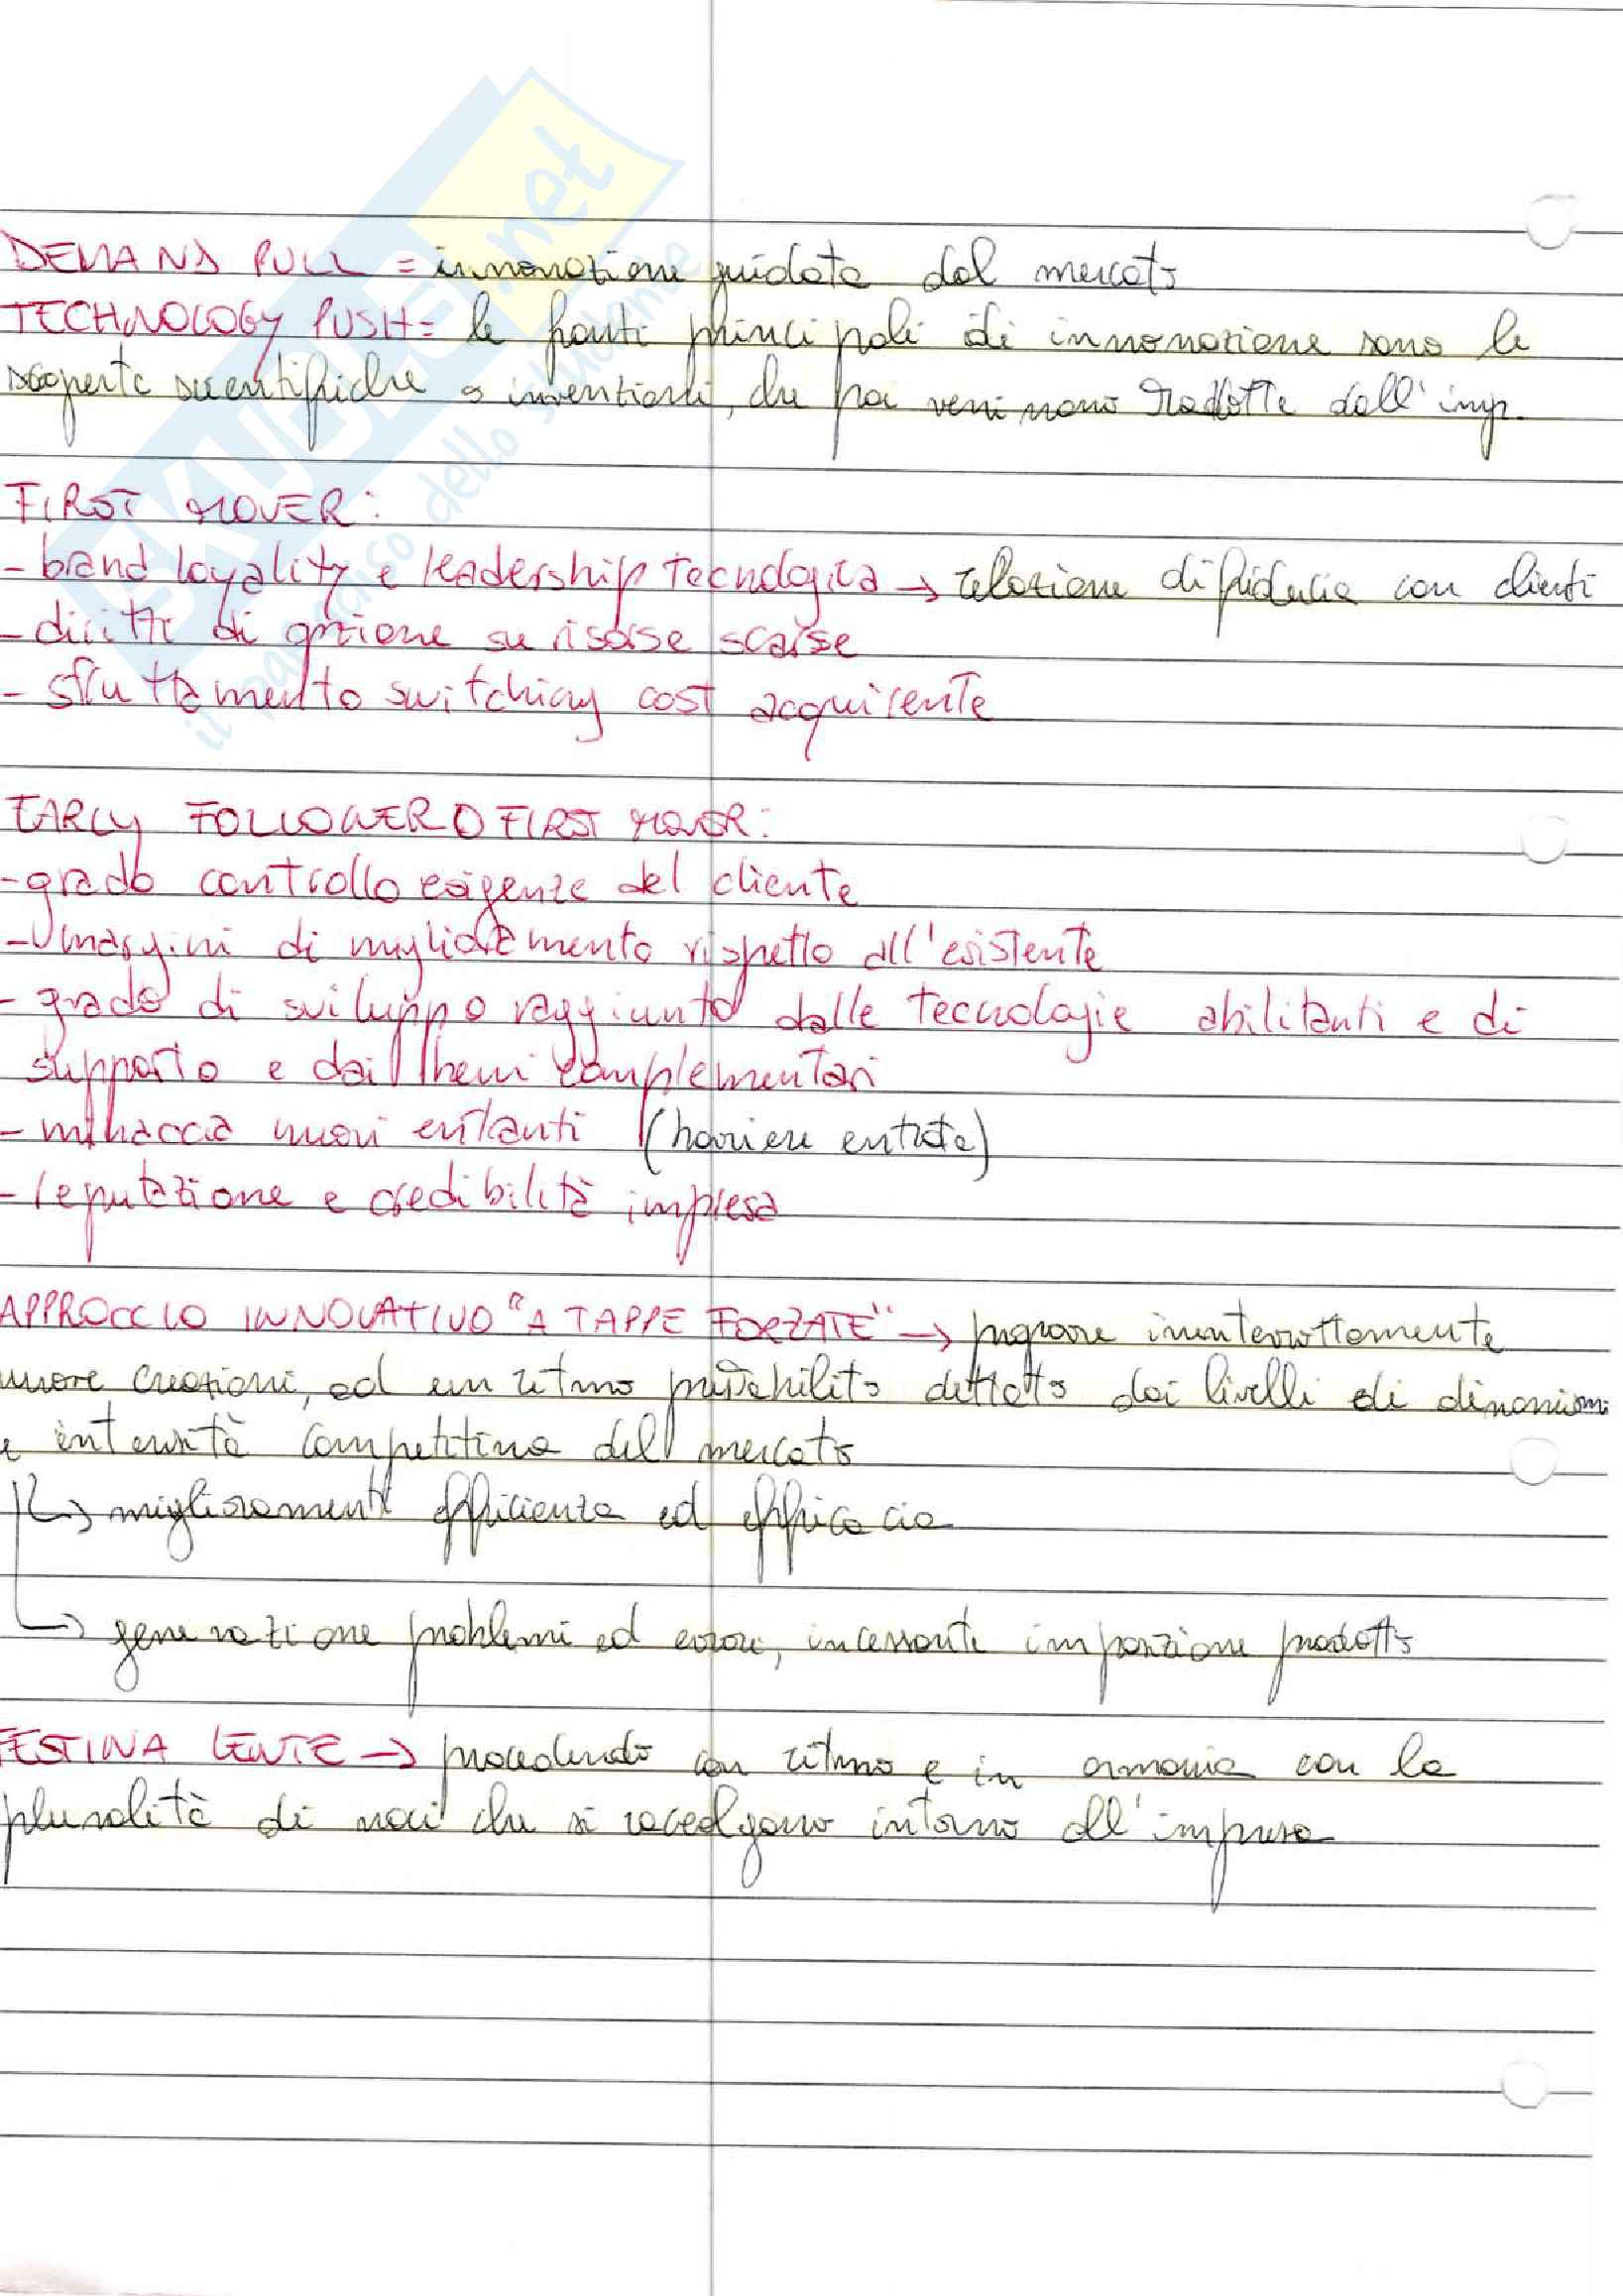 SKUOLA.net
il paradiso dello studente
DEMAND PULL = innovazione guidata dal mercato
TECHNOLOGY PUSH = le fonti principali di innovazione sono le
scoperte scientifiche o invenzioni, che poi venivano tradotte dall'imp.
FIRST MOVER:
- brand loyality e leadership tecnologica → relazione di fiducia con clienti
- diritti di opzione su risorse scarse
- sfruttamento switching cost acquirente
EARLY FOLLOWER O FIRST MOVER:
- grado controllo esigenze del cliente
- margini di miglioramento rispetto all'esistente
- grado di sviluppo raggiunto dalle tecnologie abilitanti e di
supporto e dai beni complementari
- minaccia nuovi entranti (barriere entrata)
- reputazione e credibilità impresa
APPROCCIO INNOVATIVO "A TAPPE FORZATE" → ininterrottamente
nuove creazioni, ad un ritmo prestabilito dettato dai livelli di dinamismo
e intensità competitiva del mercato
↳ miglioramenti efficienza ed efficacia
↳ generazione problemi ed errori, incessante imposizione prodotto
FESTINA LENTE → procedendo con ritmo e in armonia con la
pluralità di voci che si raccolgono intorno all'impresa